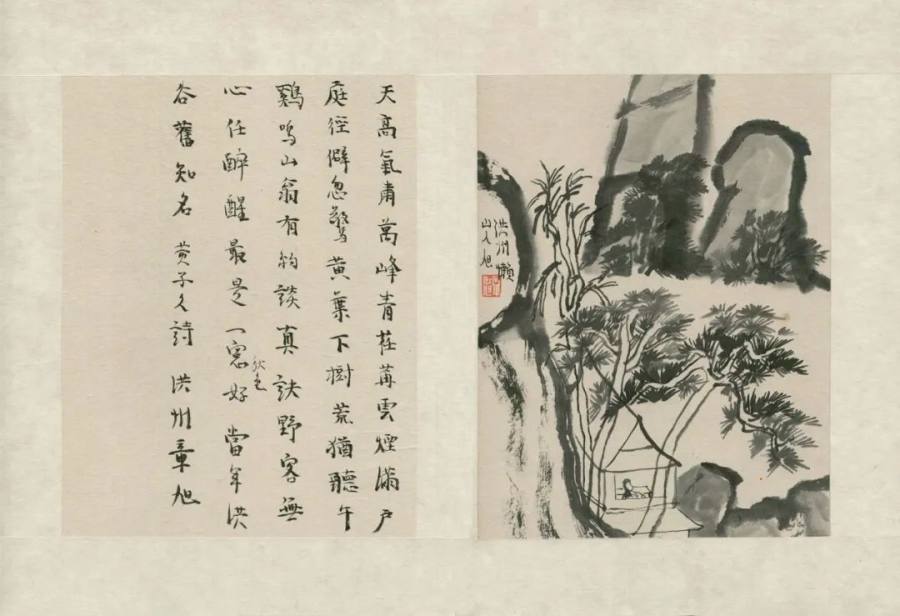 天高氣肅萬峰青荏苒雲煙滿戶
庭徑僻忽驚黃葉下樹荒猶聽午
鷄鳴山翁有約談真訣野客無
心任醉醒最是一窓好當年洪
秋色
谷舊知名 黃子久詩 洪州章旭
洪州懶
山人旭